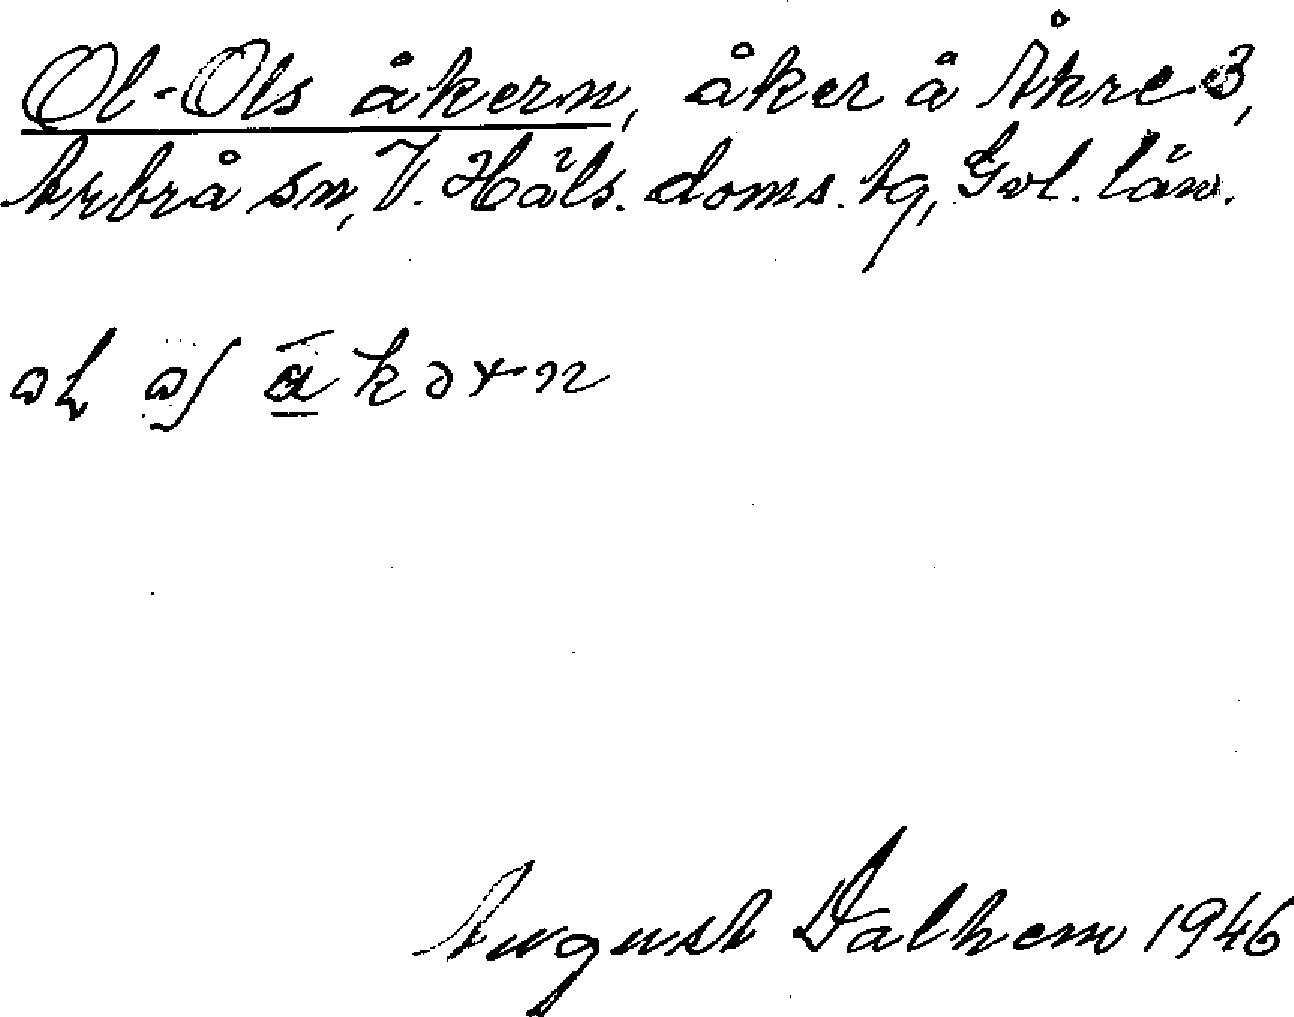 Ol-Ols åkern, åker å Åkre 3,
Arbrå sn, V. Häls. doms. tg, Gvl. län.
åkərn
August Dalhem 1946